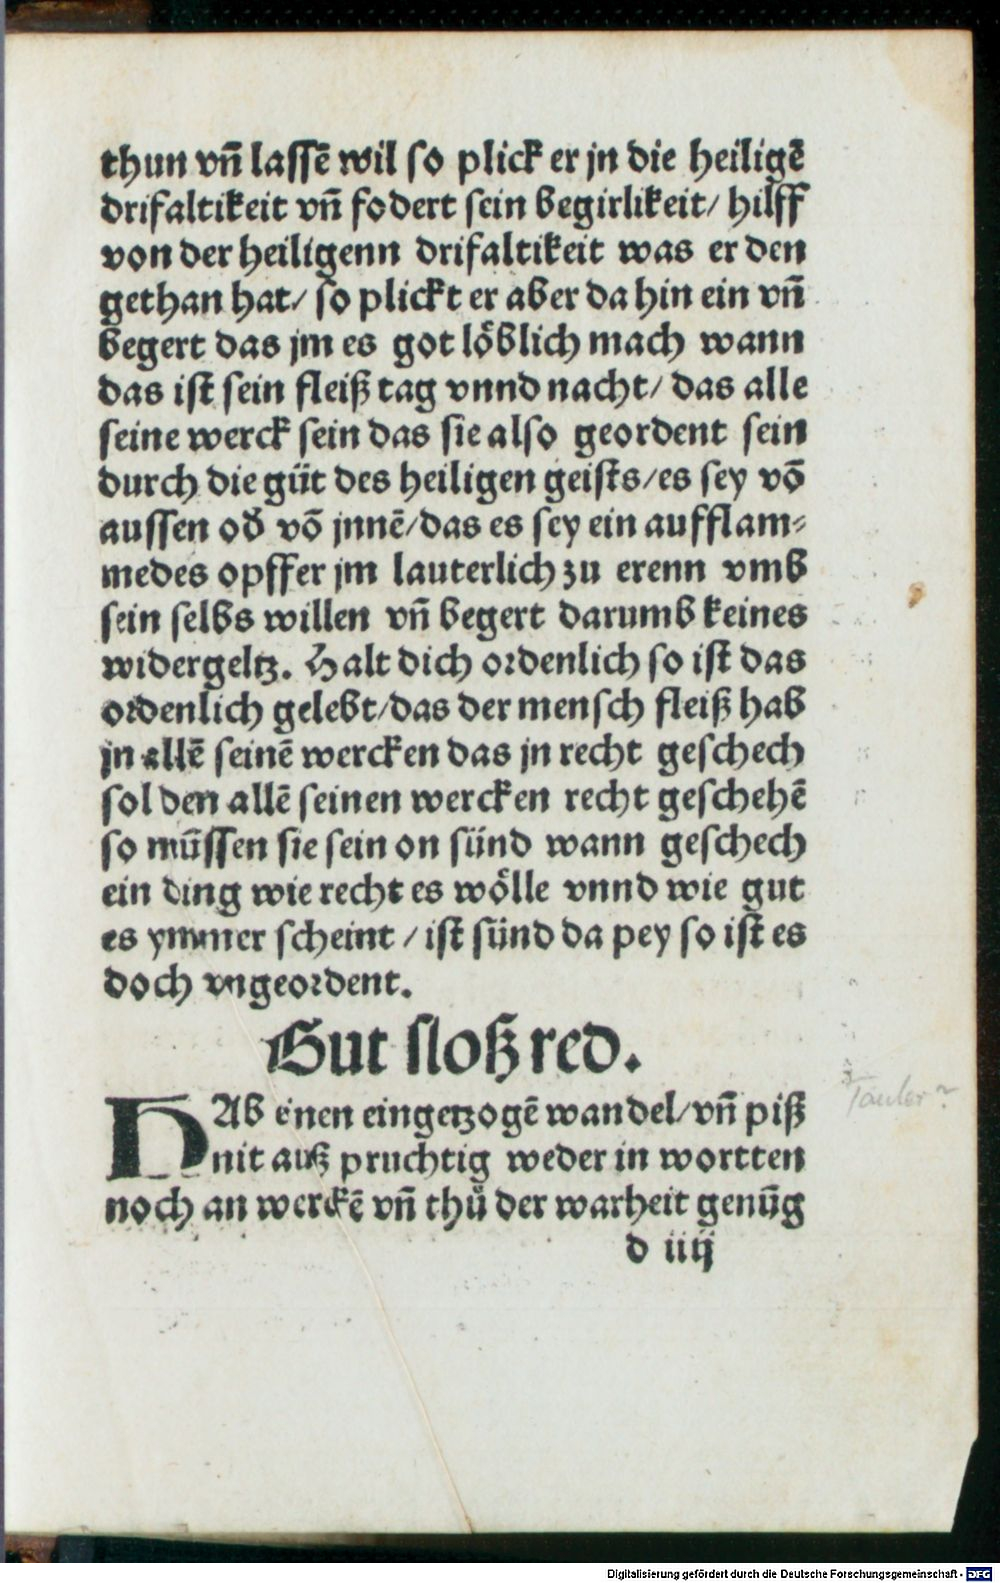 thun vñ lassē wil so plick er jn die heiligē
drifaltikeit vñ fodert sein begirlikeit/ hilff
von der heiligenn drifaltikeit was er den
gethan hat/ so plickt er aber da hin ein vñ
begert das jm es got löblich mach wann
das ist sein fleiß tag vnnd nacht/ das alle
seine werck sein das sie also geordent sein
durch die güt des heiligen geists/es sey vō
aussen od̄ vō jnnē/das es sey ein aufflam⸗
medes opffer jm lauterlich zu erenn vmb
sein selbs willen vñ begert darumb keines
widergeltz. Halt dich ordenlich so ist das
ordenlich gelebt/das der mensch fleiß hab
jn allē seinē wercken das jn recht geschech
sol den allē seinen wercken recht geschehē
so mũssen sie sein on sünd wann geschech
ein ding wie recht es wölle vnnd wie gut
es ymmer scheint / ist sünd da pey so ist es
doch vngeordent.
Gut sloß red.
HAb einen eingetzogē wandel/vñ piß
nit auß pruchtig weder in wortten
noch an werckē vñ thů der warheit genũg
d iiij
Tauler?
Digitalisierung gefördert durch die Deutsche Forschungsgemeinschaft - DFG